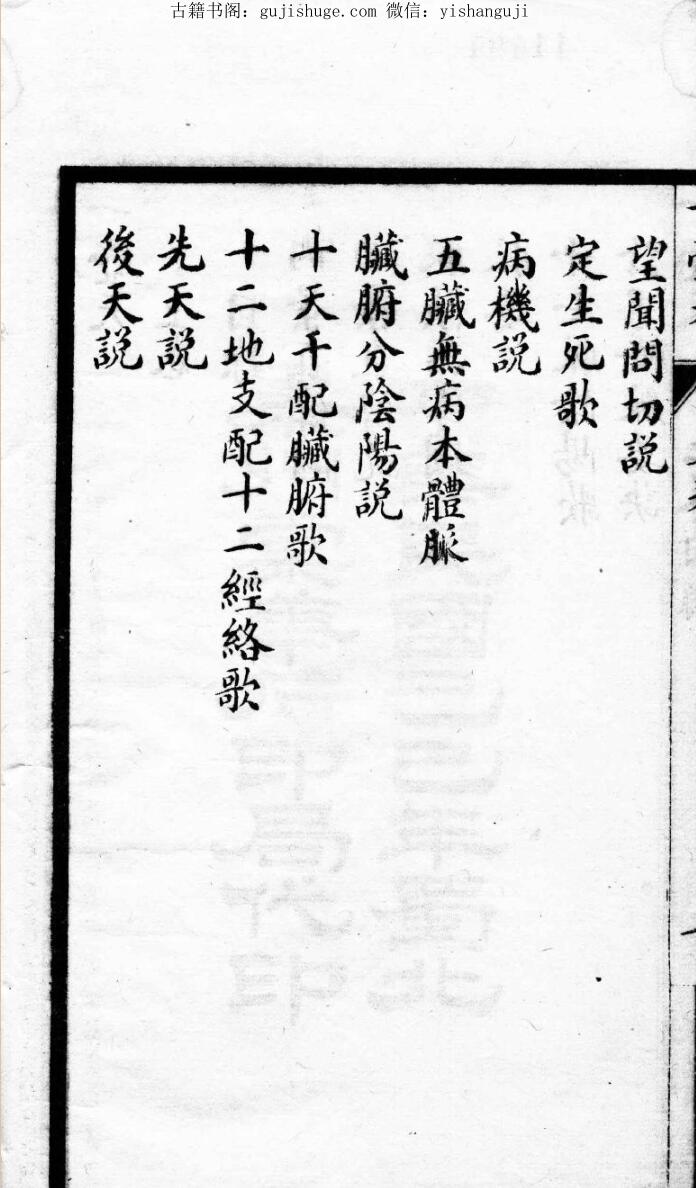 古籍书阁：gujishuge.com 微信：yishanguji
望聞問切說
定生死歌
病機說
五臟無病本體脈
臟腑分陰陽說
十天干配臟腑歌
十二地支配十二經絡歌
先天說
後天說